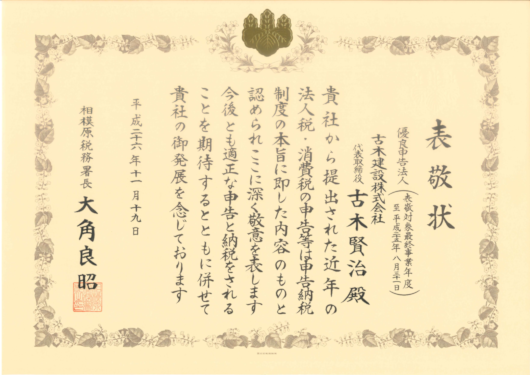 表敬状
優良申告法人
(表敬対象最終事業年度
至 平成二五年 八月三一日)
古木建設株式会社
代表取締役 古木賢治 殿
貴社から提出された近年の
法人税・消費税の申告等は申告納税
制度の本旨に即した内容のものと
認められここに深く敬意を表します
今後とも適正な申告と納税をされる
ことを期待するとともに併せて
貴社の御発展を念じております
平成二六年十一月十九日
相模原税務署長 大角良昭